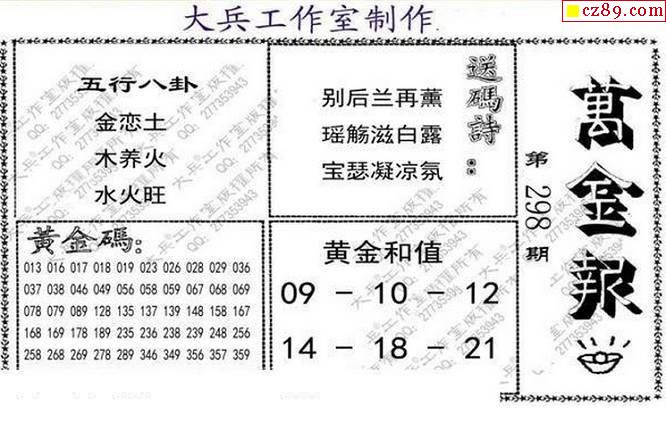 大兵工作室制作.
cz89.com
五行八卦
金恋土
木养火
水火旺
送碼詩：
别后兰再薰
瑶觞滋白露
宝瑟凝凉氛
萬金報
第298期
黃金碼：
013 016 017 018 019 023 026 028 029 036
037 038 046 049 056 058 059 067 068 069
078 079 089 128 135 138 139 148 158 167
168 169 178 189 235 238 239 246 256 257
258 268 269 278 289 346 349 356 357 359
黄金和值
09 - 10 - 12
14 - 18 - 21
大兵®工作室版權所有
QQ: 277353943